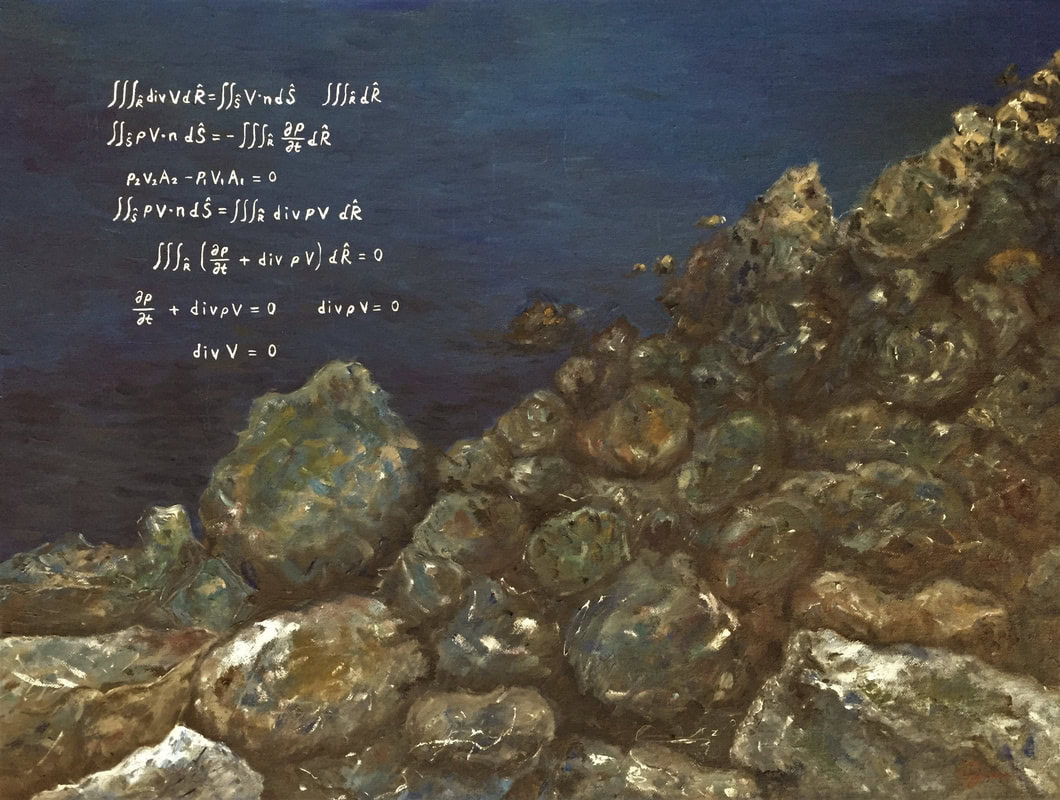 ∭_R̂ div V dR̂ = ∬_Ŝ V·n dŜ ∭_R̂ dR̂
∬_Ŝ ρV·n dŜ = - ∭_R̂ ∂ρ/∂t dR̂
ρ₂V₂A₂ - ρ₁V₁A₁ = 0
∬_Ŝ ρV·n dŜ = ∭_R̂ div ρV dR̂
∭_R̂ (∂ρ/∂t + div ρV) dR̂ = 0
∂ρ/∂t + div ρV = 0 div ρV = 0
div V = 0